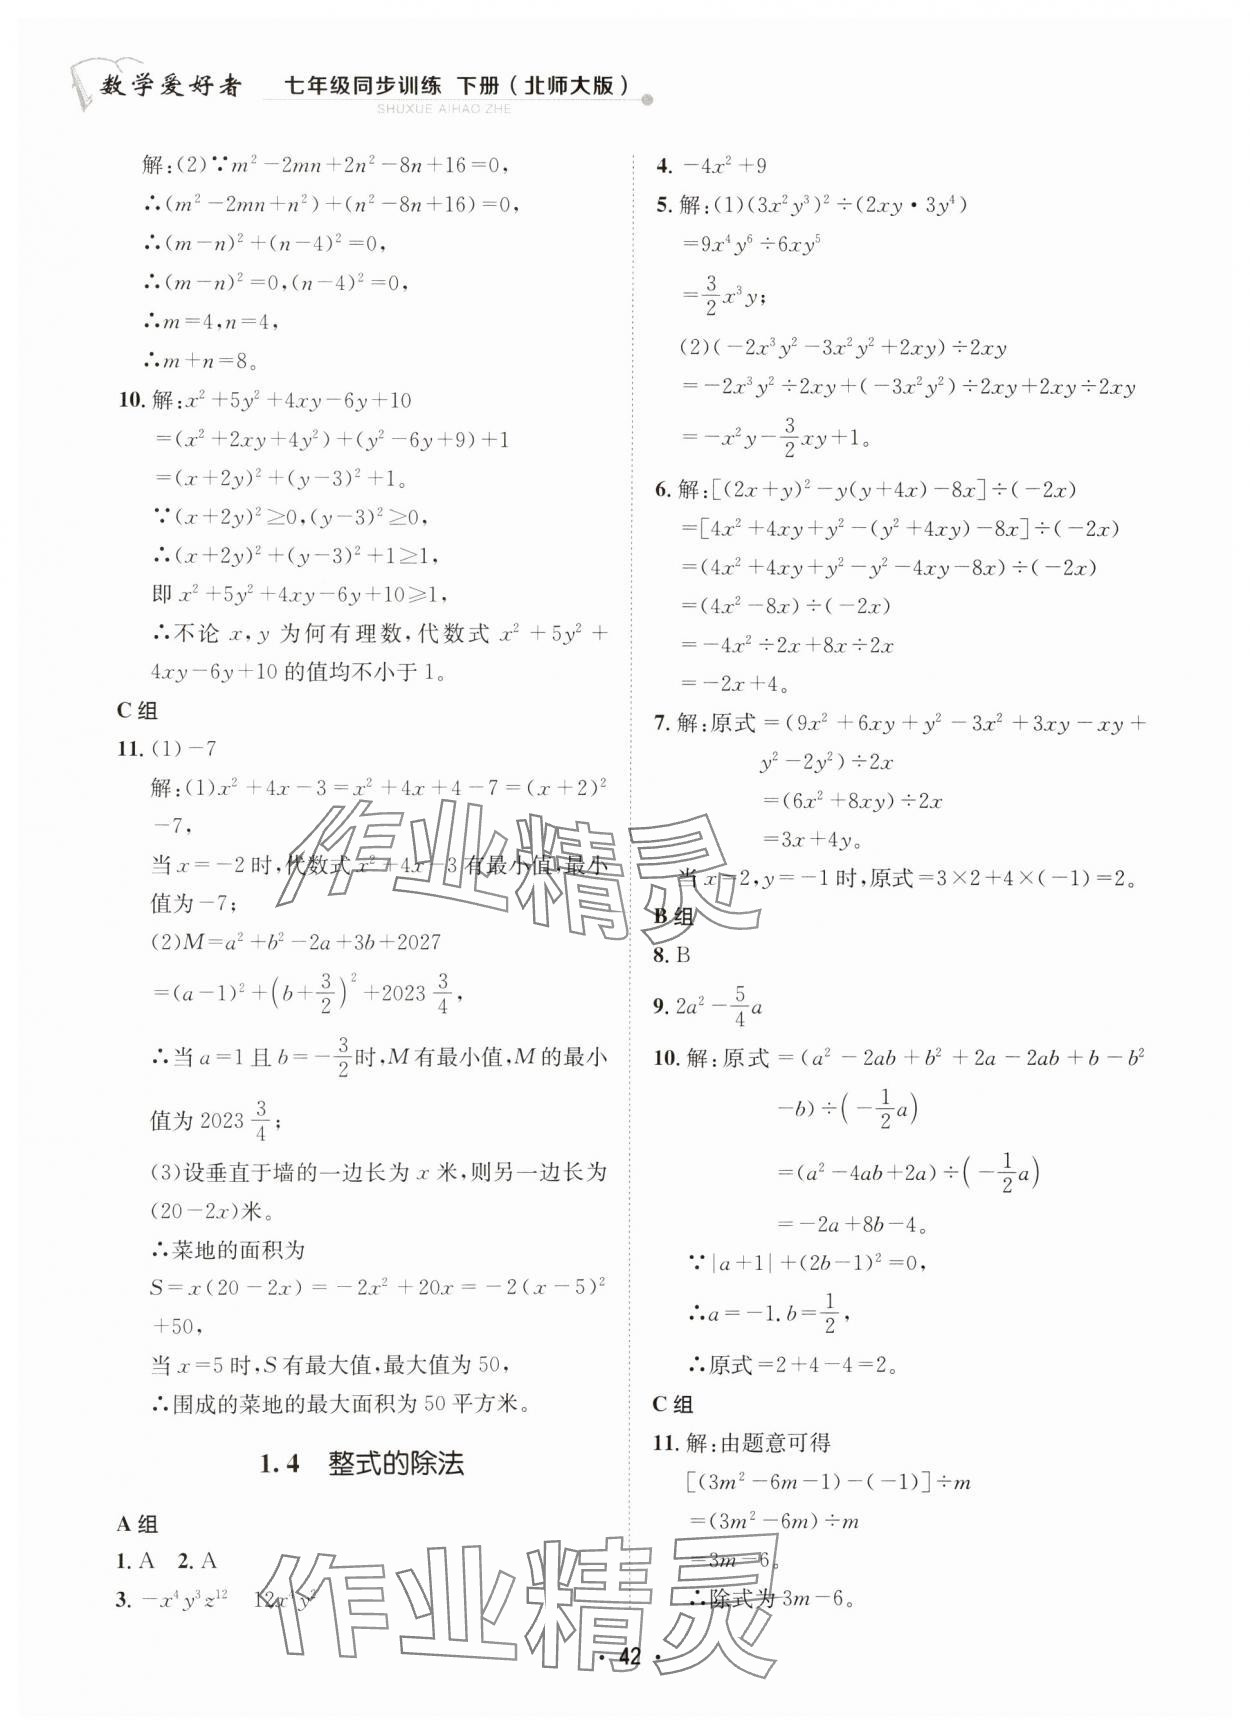 数学爱好者 七年级同步训练 下册(北师大版)
SHUXUE AIHAO ZHE
解:(2)∵m²-2mn+2n²-8n+16=0,
∴(m²-2mn+n²)+(n²-8n+16)=0,
∴(m-n)²+(n-4)²=0,
∴(m-n)²=0,(n-4)²=0,
∴m=4,n=4,
∴m+n=8。
10. 解:x²+5y²+4xy-6y+10
=(x²+2xy+4y²)+(y²-6y+9)+1
=(x+2y)²+(y-3)²+1。
∵(x+2y)²≥0,(y-3)²≥0,
∴(x+2y)²+(y-3)²+1≥1,
即 x²+5y²+4xy-6y+10≥1,
∴不论 x,y 为何有理数,代数式 x²+5y²+
4xy-6y+10 的值均不小于 1。
C 组
11. (1)-7
解:(1)x²+4x-3=x²+4x+4-7=(x+2)²
-7,
当 x=-2 时,代数式 x²+4x-3 有最小值,最小
值为-7;
(2)M=a²+b²-2a+3b+2027
=(a-1)²+(b+3/2)²+2023 3/4,
∴当 a=1 且 b=-3/2时,M 有最小值,M 的最小
值为 2023 3/4;
(3)设垂直于墙的一边长为 x 米,则另一边长为
(20-2x)米。
∴菜地的面积为
S=x(20-2x)=-2x²+20x=-2(x-5)²
+50,
当 x=5 时,S 有最大值,最大值为 50,
∴围成的菜地的最大面积为 50 平方米。
1.4 整式的除法
A 组
1. A 2. A
3. -x⁴y³z¹² 12x⁴y²
4. -4x²+9
5. 解:(1)(3x²y³)²÷(2xy·3y⁴)
=9x⁴y⁶÷6xy⁵
=3/2x³y;
(2)(-2x³y²-3x²y²+2xy)÷2xy
=-2x³y²÷2xy+(-3x²y²)÷2xy+2xy÷2xy
=-x²y-3/2xy+1。
6. 解:[(2x+y)²-y(y+4x)-8x]÷(-2x)
=[4x²+4xy+y²-(y²+4xy)-8x]÷(-2x)
=(4x²+4xy+y²-y²-4xy-8x)÷(-2x)
=(4x²-8x)÷(-2x)
=-4x²÷2x+8x÷2x
=-2x+4。
7. 解:原式=(9x²+6xy+y²-3x²+3xy-xy+
y²-2y²)÷2x
=(6x²+8xy)÷2x
=3x+4y。
当 x=2,y=-1 时,原式=3×2+4×(-1)=2。
B 组
8. B
9. 2a²-5/4a
10. 解:原式=(a²-2ab+b²+2a-2ab+b-b²
-b)÷(-1/2a)
=(a²-4ab+2a)÷(-1/2a)
=-2a+8b-4。
∵|a+1|+(2b-1)²=0,
∴a=-1.b=1/2,
∴原式=2+4-4=2。
C 组
11. 解:由题意可得
[(3m²-6m-1)-(-1)]÷m
=(3m²-6m)÷m
=3m-6。
∴除式为 3m-6。
作业精灵
作业精灵
· 42 ·